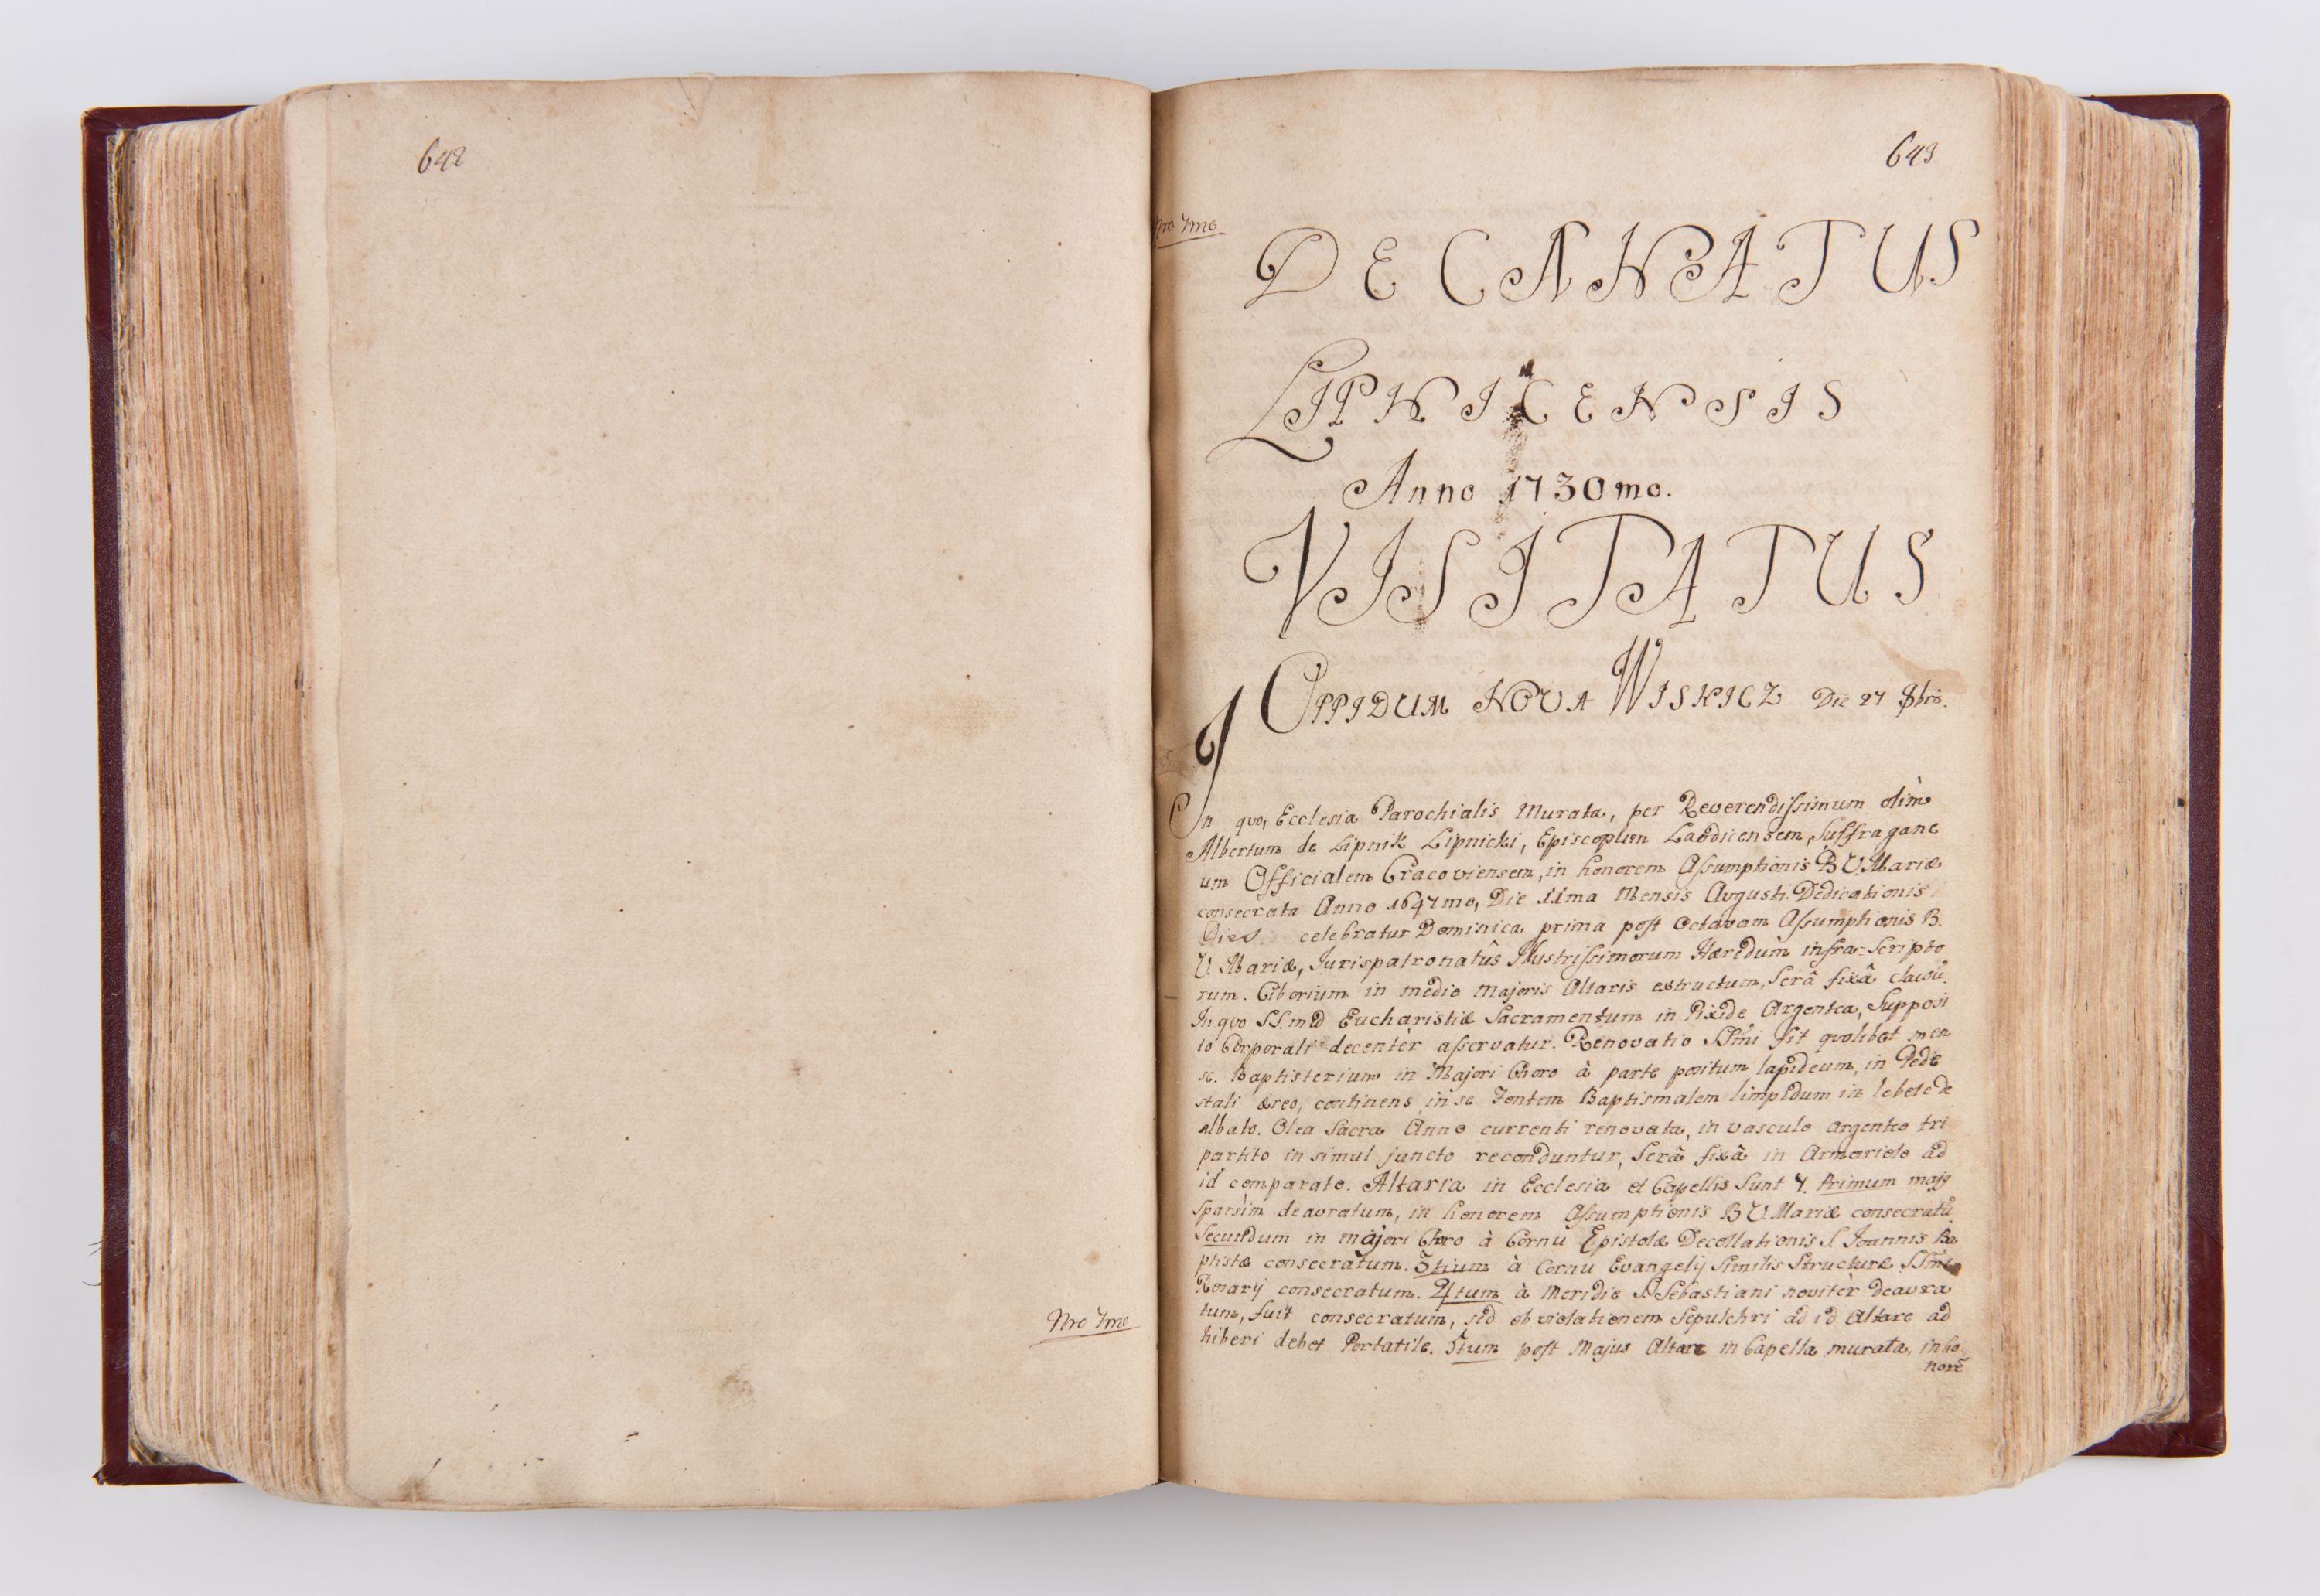 642
Nro 7mo
643
Nro 7mo
DECANATUS
LIPNICENSIS
Anno 1730mo.
VISITATUS
OPPIDUM NOVA WISNICZ Die 27 8bris.
In quo, Ecclesia Parochialis Murata, per Reverendissimum olim
Albertum de Lipnik Lipnicki, Episcopum Laodicensem, Suffragane
um Officialem Cracoviensem, in honorem Assumptionis B V. Mariæ
consecrata Anno 1647mo, Die 11ma Mensis Augusti. Dedicationis
Dies celebratur Dominica prima post Octavam Assumptionis B.
V. Mariæ, Jurispatronatûs Illustrissimorum Hæredum infra-Scripto
rum. Ciborium in medio Majoris Altaris extructum, Serâ fixâ clausũ.
In quo SS.mũ Eucharistiæ Sacramentum in Pixide Argentea, Supposi
to Corporali decentèr asservatur. Renovatio SSm̃i fit quolibet men
se. Baptisterium in Majori Choro à parte positum lapideum, in Pede
stali æreo, continens in se Fontem Baptismalem limpidum in lebete de
albato. Olea Sacra Anno currenti renovata, in vasculo argenteo tri
partito in simul juncto reconduntur, Serâ fixâ in Armariolo ad
id comparato. Altaria in Ecclesia et Capellis Sunt 7. Primum majg
Sparsìm deauratum, in honorem Assumptionis B V. Mariæ consecratũ.
Secundum in majori Choro à Cornu Epistolæ Decollationis S. Joannis Ba
ptistæ consecratum. 3tium à Cornu Evangelij Similis Structuræ SSmi
Rosarij consecratum. 4tum à Meridie S. Sebastiani novitèr deaura
tum, fuit consecratum, sed ob violationem Sepulchri ad id Altare ad
hiberi debet Portatile. 5tum post Majus Altare in Capella murata, in ho
norẽ